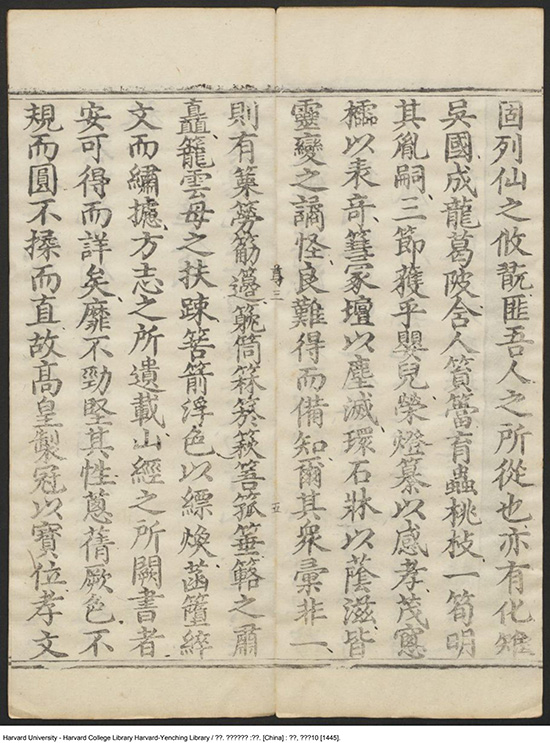 固列仙之攸翫匪吾人之所從也亦有化雉
吳國成龍葛陂含人篔簹育蟲桃枝一筍明
其胤嗣三節獲乎嬰兒榮燈纂以感孝茂寃
以表竒篲冡壇以塵滅環石牀以蔭滋皆
靈變之譎怪良難得而備知爾其衆彙非一
三
五
則有簩筯筒箖箊箛箠之屬
矗籠雲母之扶踈箭浮色以縹煥菡綷
文而繡攄方志之所遺載山經之所闕書者
安可得而詳矣靡不勁堅其性蔥蒨厥色不
規而圓不揉而直故髙皇製冠以寶位孝文
Harvard University - Harvard College Library Harvard-Yenching Library / ??. ?????? :??. [China] : ??, ???10 [1445].